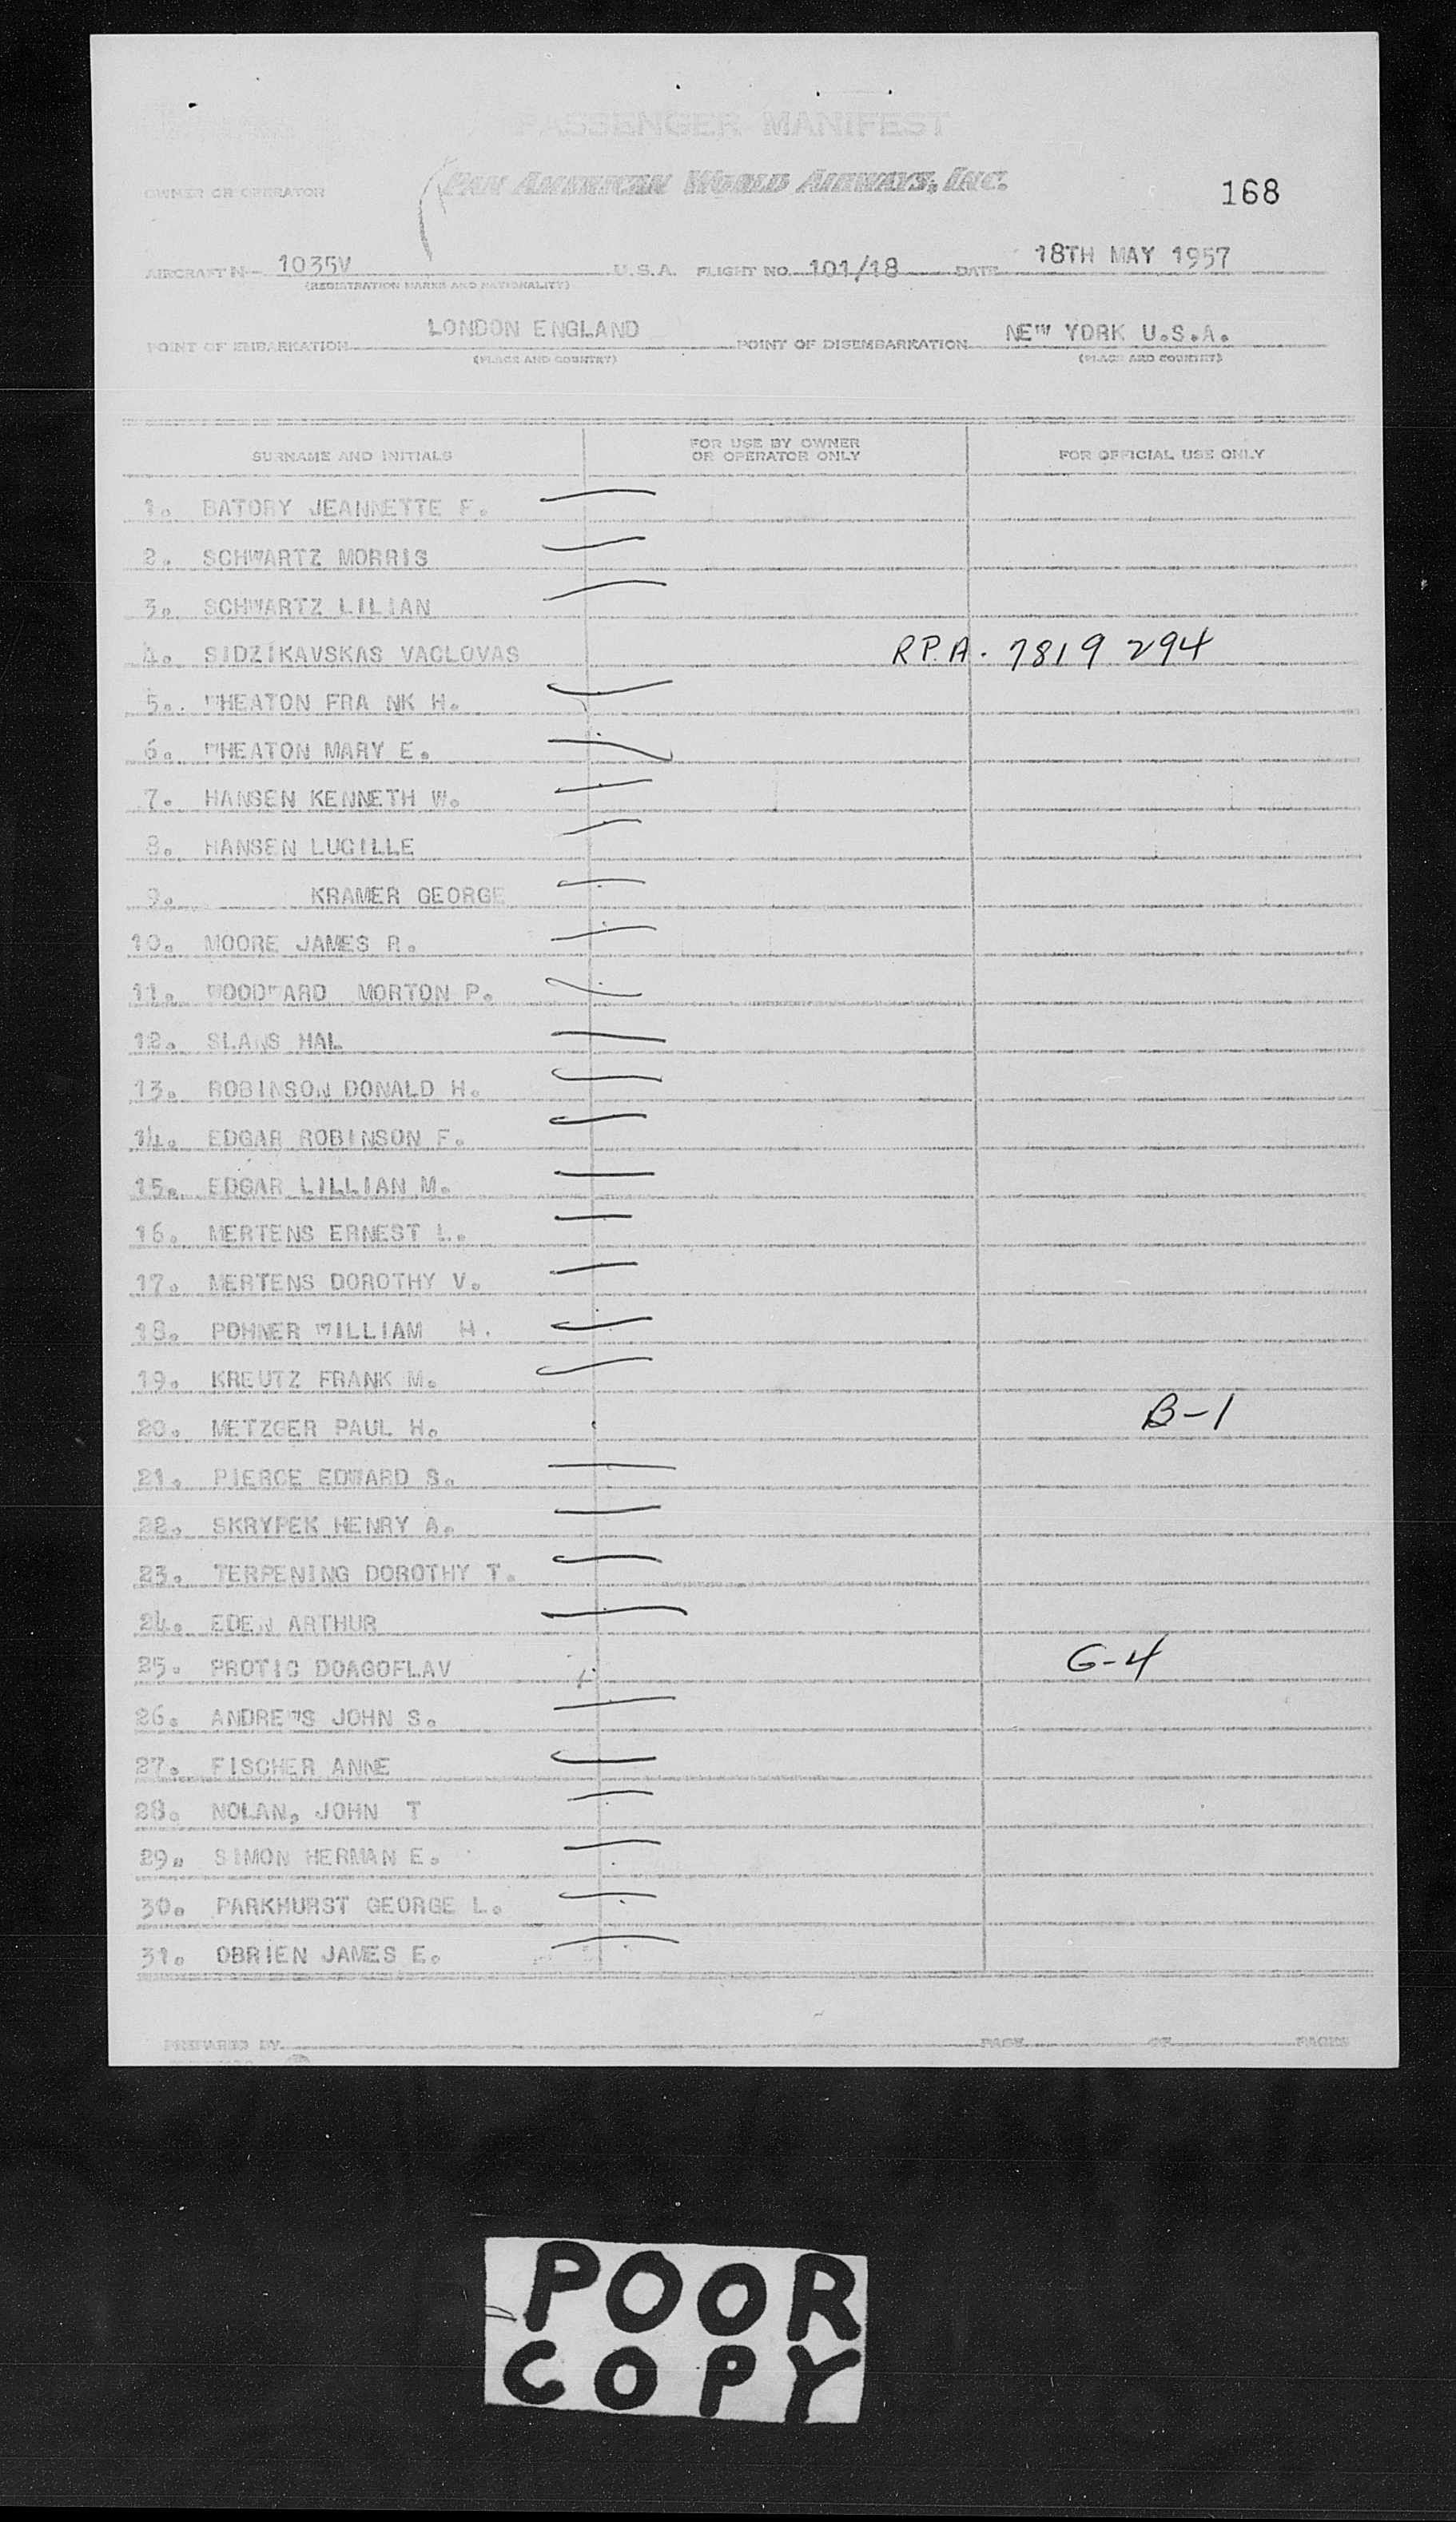 PASSENGER MANIFEST
OWNER OR OPERATOR PAN AMERICAN WORLD AIRWAYS, INC. 168
AIRCRAFT N- 1035V U.S.A. FLIGHT NO. 101/18 DATE 18TH MAY 1957
(REGISTRATION MARKS AND NATIONALITY)
POINT OF EMBARKATION LONDON ENGLAND POINT OF DISEMBARKATION NEW YORK U.S.A.
(PLACE AND COUNTRY) (PLACE AND COUNTRY)
SURNAME AND INITIALS FOR USE BY OWNER OR OPERATOR ONLY FOR OFFICIAL USE ONLY
1. BATORY JEANNETTE F.
2. SCHWARTZ MORRIS
3. SCHWARTZ LILIAN
4. SIDZIKAVSKAS VACLOVAS R.P.A. 7819 294
5. WHEATON FRA NK H.
6. WHEATON MARY E.
7. HANSEN KENNETH W.
8. HANSEN LUCILLE
9. KRAMER GEORGE
10. MOORE JAMES R.
11. WOODWARD MORTON P.
12. SLANS HAL
13. ROBINSON DONALD H.
14. EDGAR ROBINSON F.
15. EDGAR LILLIAN M.
16. MERTENS ERNEST L.
17. MERTENS DOROTHY V.
18. POHNER WILLIAM H.
19. KREUTZ FRANK M.
20. METZGER PAUL H. B-1
21. PIERCE EDWARD S.
22. SKRYPEK HENRY A.
23. TERPENING DOROTHY T.
24. EDEN ARTHUR
25. PROTIC DOAGOFLAV G-4
26. ANDREWS JOHN S.
27. FISCHER ANNE
28. NOLAN, JOHN T
29. SIMON HERMAN E.
30. PARKHURST GEORGE L.
31. OBRIEN JAMES E.
PREPARED BY PAGE OF PAGES
POOR
COPY